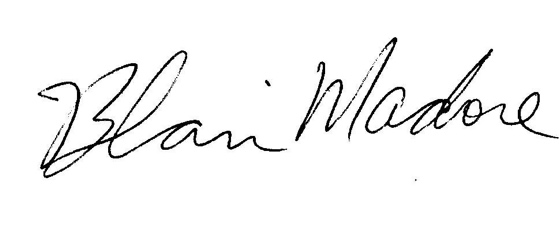 Blair Madore